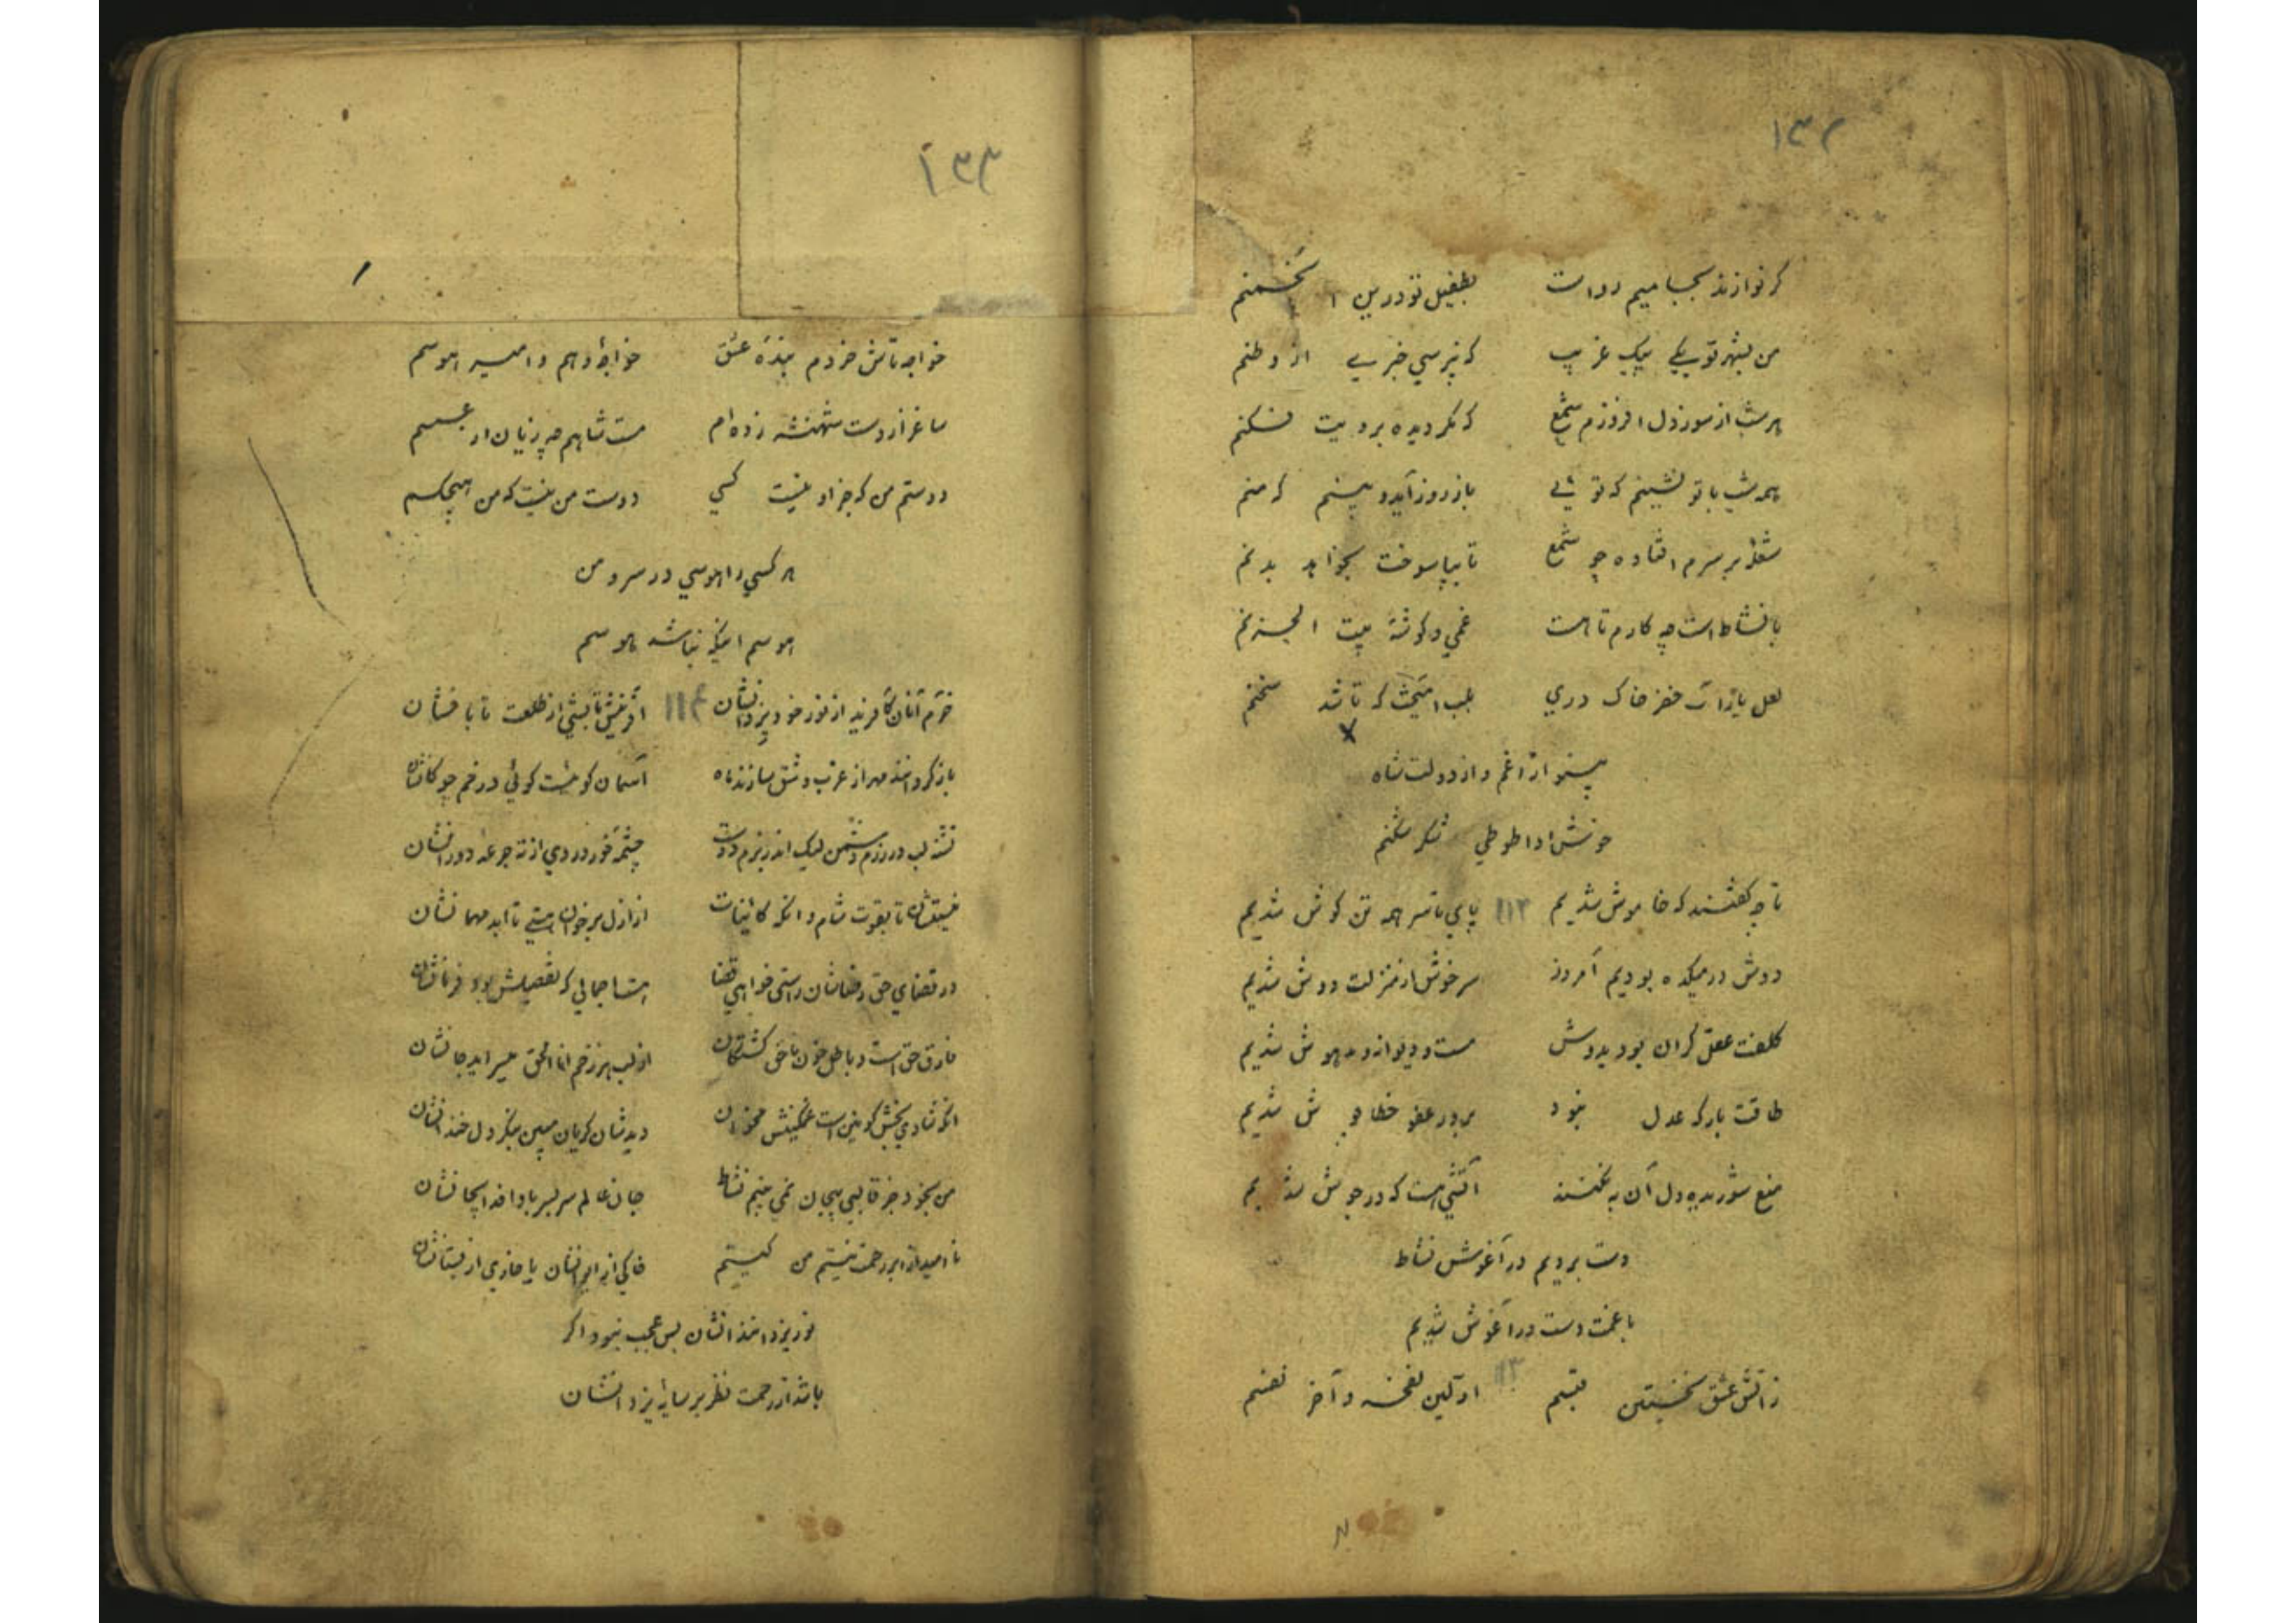 ۱۳۲
گر نوازند بجا میم رواست بطفیل تو درین انجمنم
من بشهر تو یکی پیک غریب که نپرسی خبری از وطنم
هر شب از سوز دل افروزم شمع که مگر دیده برویت فکنم
همه شب با تو نشینم که تویی باز روز آید و بینم که منم
شعله بر سرم افتاده چو شمع تا بپا سوخت بخواهد بدنم
با نشاط است چه کارم تا هست غمی و گوشهٔ بیت الحزنم
لعل یار است خضر خاک دری بلب آمیخت که تا شد سخنم
بشنو از غم و از دولت شاه
خوش ادا طوطی شکر شکنم
تا چه گفتند که خاموش شدیم ۱۱۲ پای تا سر همه تن گوش شدیم
دوش در میکده بودیم امروز سرخوش از منزلت دوش شدیم
کلفت عقل گران بود بدوش مست و دیوانه و مدهوش شدیم
طاقت بارکه عدل نبود بر در عفو خطا پوش شدیم
منع شوریده دل آن به نکنند آتشی هست که در جوش شدیم
دست بردیم در آغوش نشاط
با غمت دست در آغوش شدیم
ز آتش عشق نخستین قبسم ۱۱۳ اولین نفخه و آخر نفسم
۱۳۳
خواجه تاش خردم بندهٔ عشق خواجهٔ وهم و امیر هوسم
ساغر از دست شهنشه زده‌ام مست شاهم چه زیان از عسسم
دوستم من که جز او نیست کسی دوست من نیست که من هیچکسم
هر کسی را هوسی در سر و من
هوسم اینکه نباشد هوسم
خرم آنان کافرید از نور خود یزدانشان ۱۱۴ آفرینش تابشی از طلعت تابانشان
باز گردانند مهر از غرب و شق سازند ماه آسمان گو نیست گویی در خم چوگانشان
تشنه لب در رزم دشمن لیک اندر بزم دوست چشمه خور دردی از ته جرعه دورانشان
نیستشان تا بقوت شام و آنگه کائینات از ازل بر خوان هستی تا ابد مهمانشان
در قضای حق رضاشان راستی خواهی قضا هست اجمالی که تفصیلش بود فرمانشان
فارق حق است و باطل خون ناحق کشتگان از لب هر زخم انا الحق میسراید جانشان
آنکه شادی بخش کونین است غمگینش مخوان دیدشان گریان مبین بنگر دل خندانشان
من بخود جز قالبی بیجان نمی بینم نشاط جان عالم سر بسر بادا فدای جانشان
نا امید از ابر رحمت نیستم من کیستم خاکی از ایوانشان یا خاری از بستانشان
نور یزدانند ایشان بس عجب نبود اگر
باشد از رحمت نظر بر سایهٔ یزدانشان